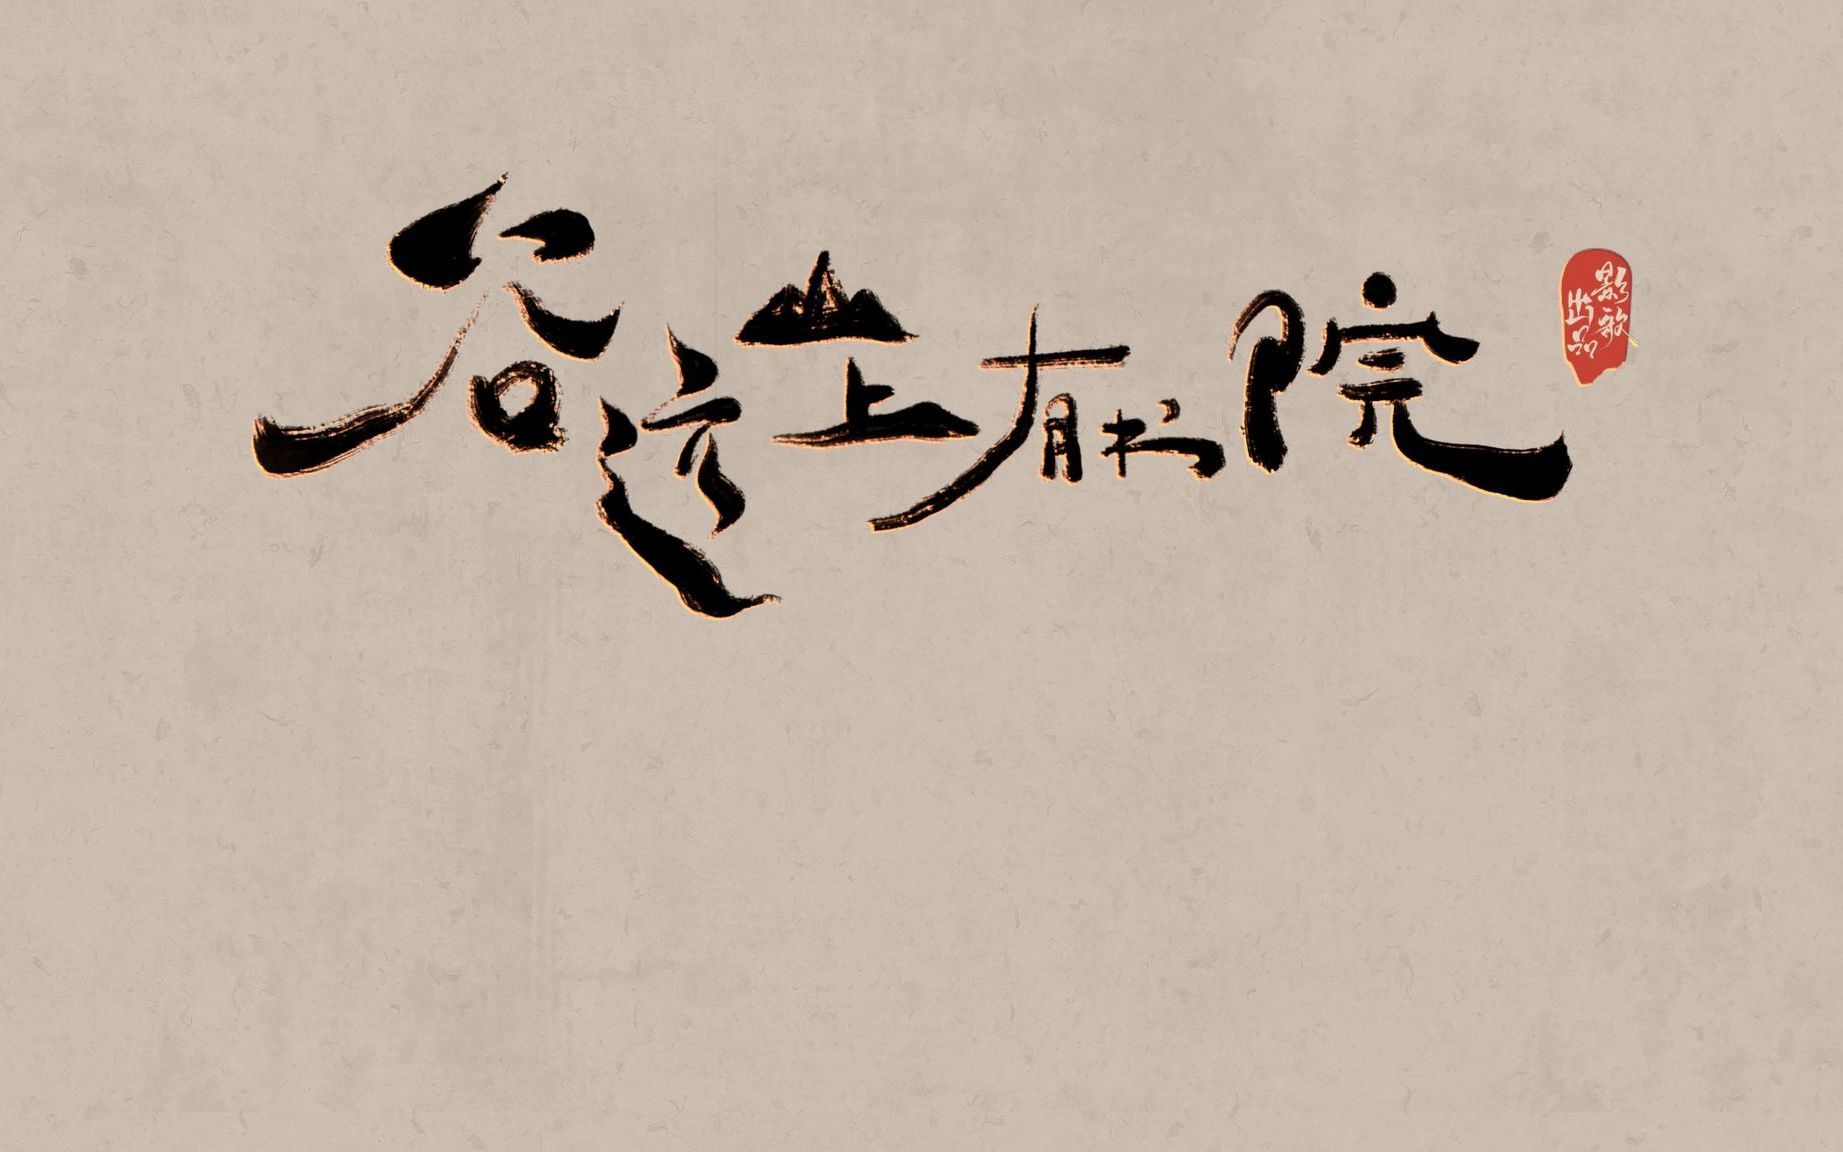 谷远山上有书院
影歌
出品